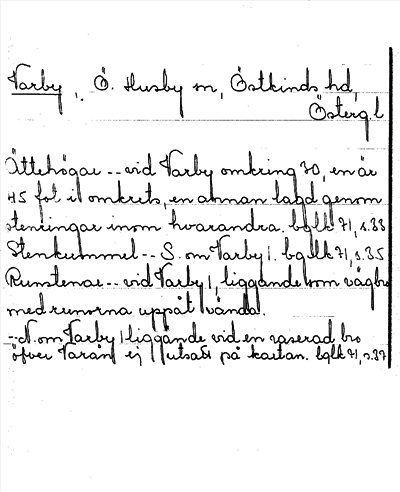 Varby, Ö. Husby sn, Östkinds hd,
Österg.l
Ättehögar -- vid Varby omkring 30, en är
45 fot i omkrets, en annan lagd genom
stenringar inom hvarandra. bglk 71, s.33
Stenkummel -- S. om Varby 1. bglk 71, s.35
Runstenar -- vid Varby 1, liggande som vägbro
med runorna uppåt vända.
-- N. om Varby 1 liggande vid en raserad bro
öfver Varån ej utsatt på kartan. bglk 71, s.37